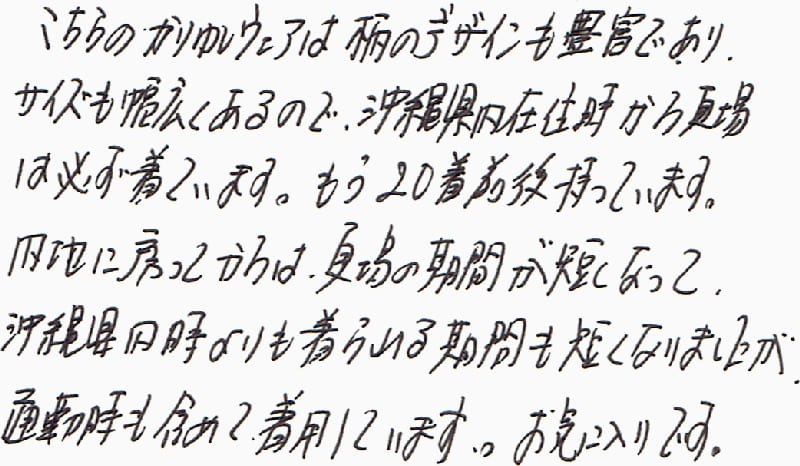 こちらのかりゆしウェアは柄のデザインも豊富であり、
サイズも幅広くあるので、沖縄県内在住時から夏場
は必ず着ています。もう20着前後持っています。
内地に戻ってからは、夏場の期間が短くなって、
沖縄県内時よりも着られる期間も短くなりましたが、
通勤時も含めて着用しています。お気に入りです。